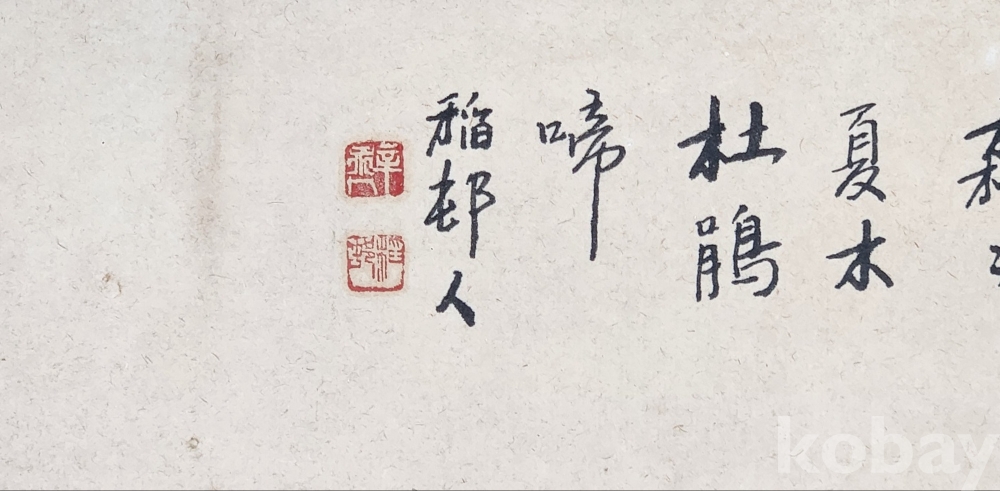 夏木
杜鵑
啼
稻邨人
kobay